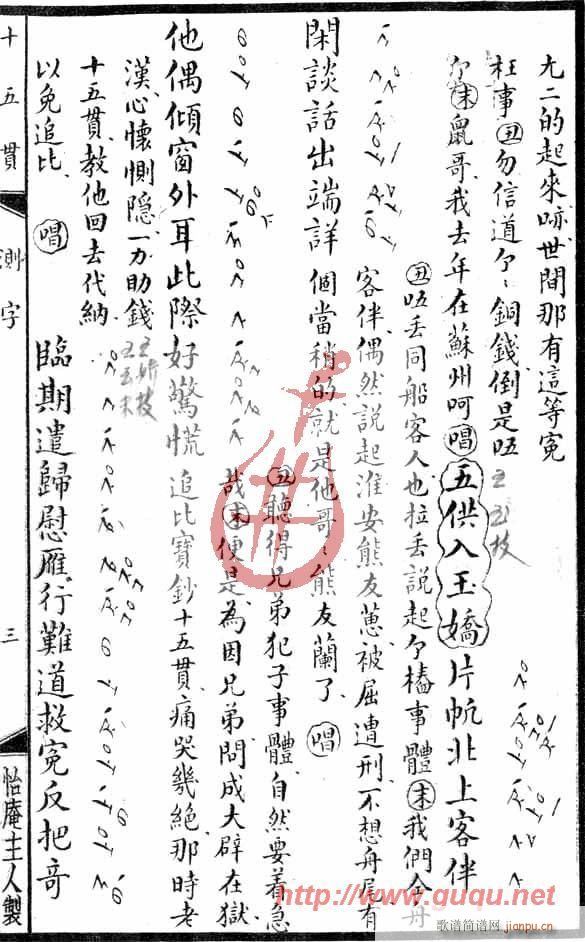 尢二的起來咏世間那有這等冤
枉事丑勿信道介、銅錢倒是唔
介末鼠哥我去年在蘇州呵唱五供入玉嬌片帆北上客伴
丑唔丢同船客人也拉丢説起介樁事體末我們合舟
客伴偶然説起淮安熊友蕙被屈遭刑不想舟尾有
閑談話出端詳個當稍的就是他哥、熊友蘭了唱
丑聽得兄弟犯子事體自然要着急
哉末便是為因兄弟問成大辟在獄
他偶傾窗外耳此際好驚慌追比寶鈔十五貫痛哭幾絶那時老
漢心懷惻隐一力助錢
十五貫教他回去代納
以免追比唱臨期遣歸慰雁行難道救冤反把奇
十五貫
測字
三
怡庵主人製
http://www.guqu.net
歌谱简谱网
jianpu.cn